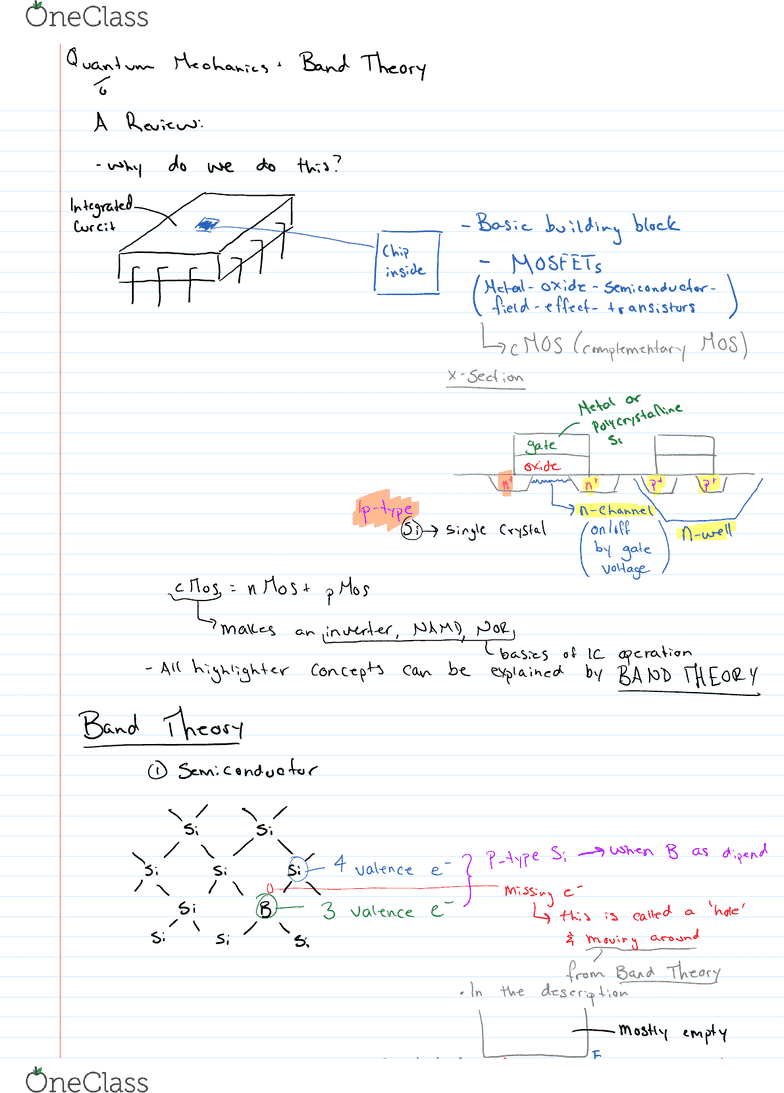 OneClass
Quantum Mechanics + Band Theory
A Review:
- why do we do this?
Integrated
Curcit
Chip
inside
- Basic building block
- MOSFETs
(Metal-oxide-semiconductor-
field-effect-transistors)
↳ cMOS (complementary MOS)
x-section
Metal or
polycrystalline
Si
gate
oxide
n+ n+ p+ p+
p-type
Si → single crystal
n-channel
(on/off
by gate
voltage)
n-well
cMos = nMos + pMos
↳ makes an inverter, NAND, NOR,
basics of IC operation
- All highlighter concepts can be explained by BAND THEORY
Band Theory
① Semiconductor
Si Si
Si Si Si 4 valence e⁻
p-type Si → when B as dipend
Si B 3 valence e⁻
Missing e⁻
↳ this is called a 'hole'
& moving around
Si Si Si
from Band Theory
• In the description
mostly empty
E
OneClass